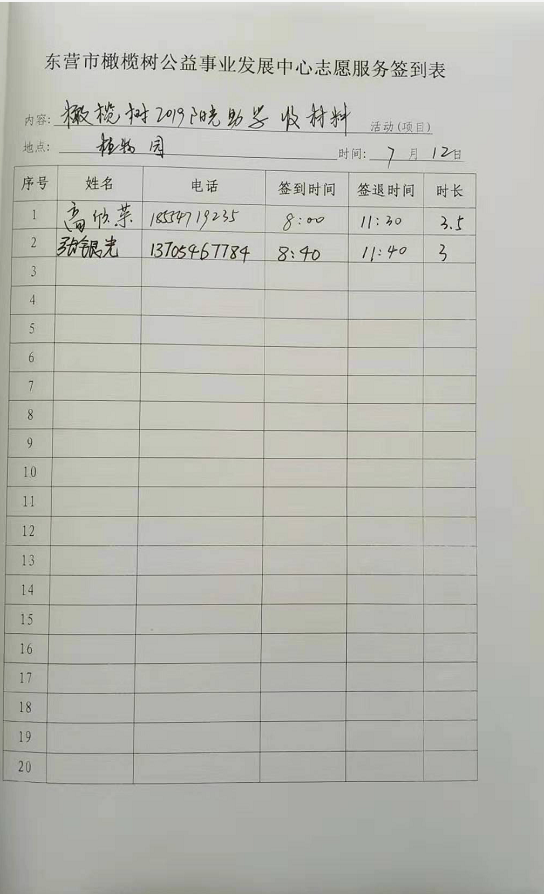 东营市橄榄树公益事业发展中心志愿服务签到表
内容: 橄榄树2019阳光助学收材料 活动(项目)
地点: 植物园 时间: 7月12日
序号 姓名 电话 签到时间 签退时间 时长
1 高欣荣 18554719235 8:00 11:30 3.5
2 13705467784 8:40 11:40 3
3
4
5
6
7
8
9
10
11
12
13
14
15
16
17
18
19
20